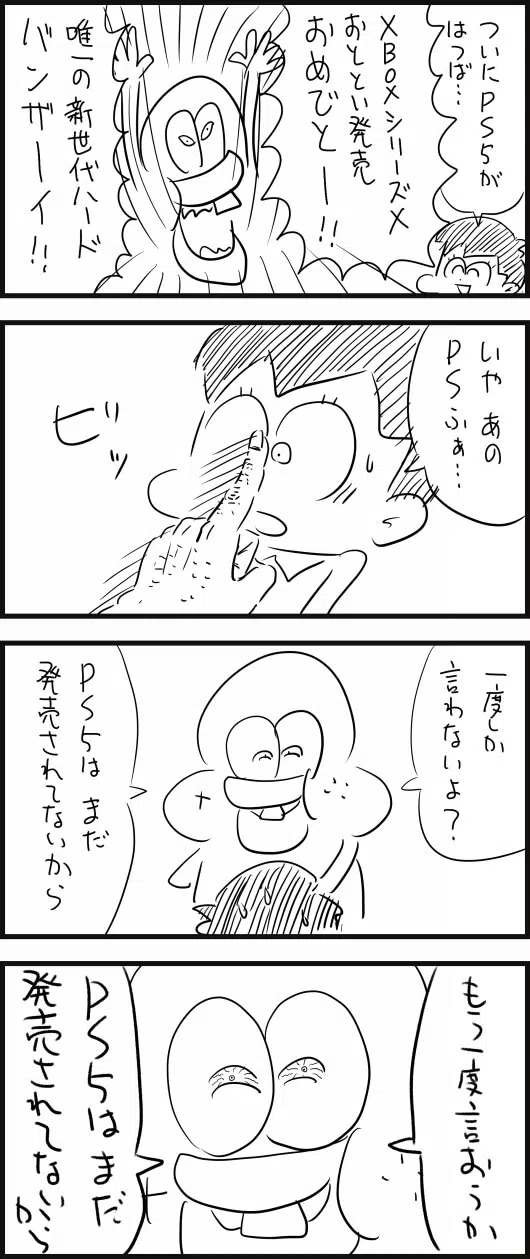 ついにPS5が
はつば…
XBOXシリーズX
おととい発売
おめでとー!!
唯一の新世代ハード
バンザーイ!!
いや あの
PSふぁ…
ビッ
一度しか
言わないよ?
PS5は まだ
発売されてないから
もう一度言おうか
PS5は まだ
発売されてない…から